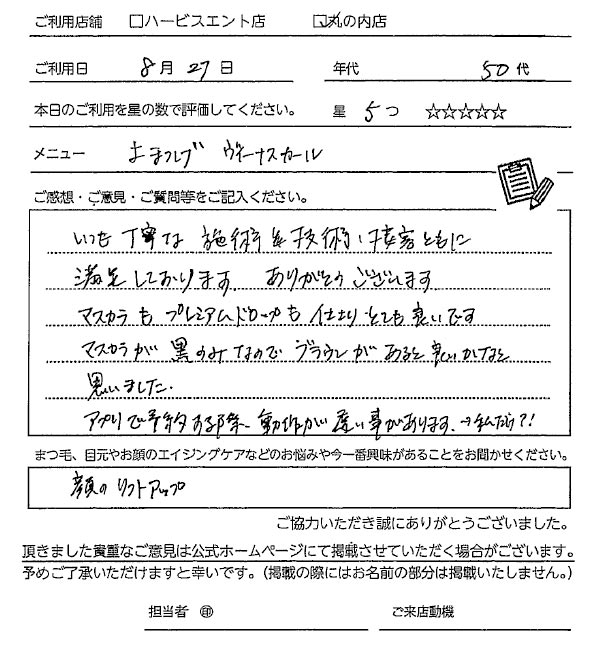 ご利用店舗 □ハービスエント店 ☑丸の内店
ご利用日 8月27日 年代 50代
本日のご利用を星の数で評価してください。 星 5つ ☆☆☆☆☆
メニュー 上まつげ ヴィーナスカール
ご感想・ご意見・ご質問等をご記入ください。
いつも丁寧な施術&技術、接客ともに
満足しております ありがとうございます
マスカラも プレミアムドロップも 仕上り とても良いです
マスカラが 黒のみなので ブラウンが あると 良いかなと
思いました.
アプリで予約する際、動作が遅い事があります. →私だけ?!
まつ毛、目元やお顔のエイジングケアなどのお悩みや今一番興味があることをお聞かせください。
顔のリフトアップ
ご協力いただき誠にありがとうございました。
頂きました貴重なご意見は公式ホームページにて掲載させていただく場合がございます。
予めご了承いただけますと幸いです。(掲載の際にはお名前の部分は掲載いたしません。)
担当者 ㊞ ご来店動機